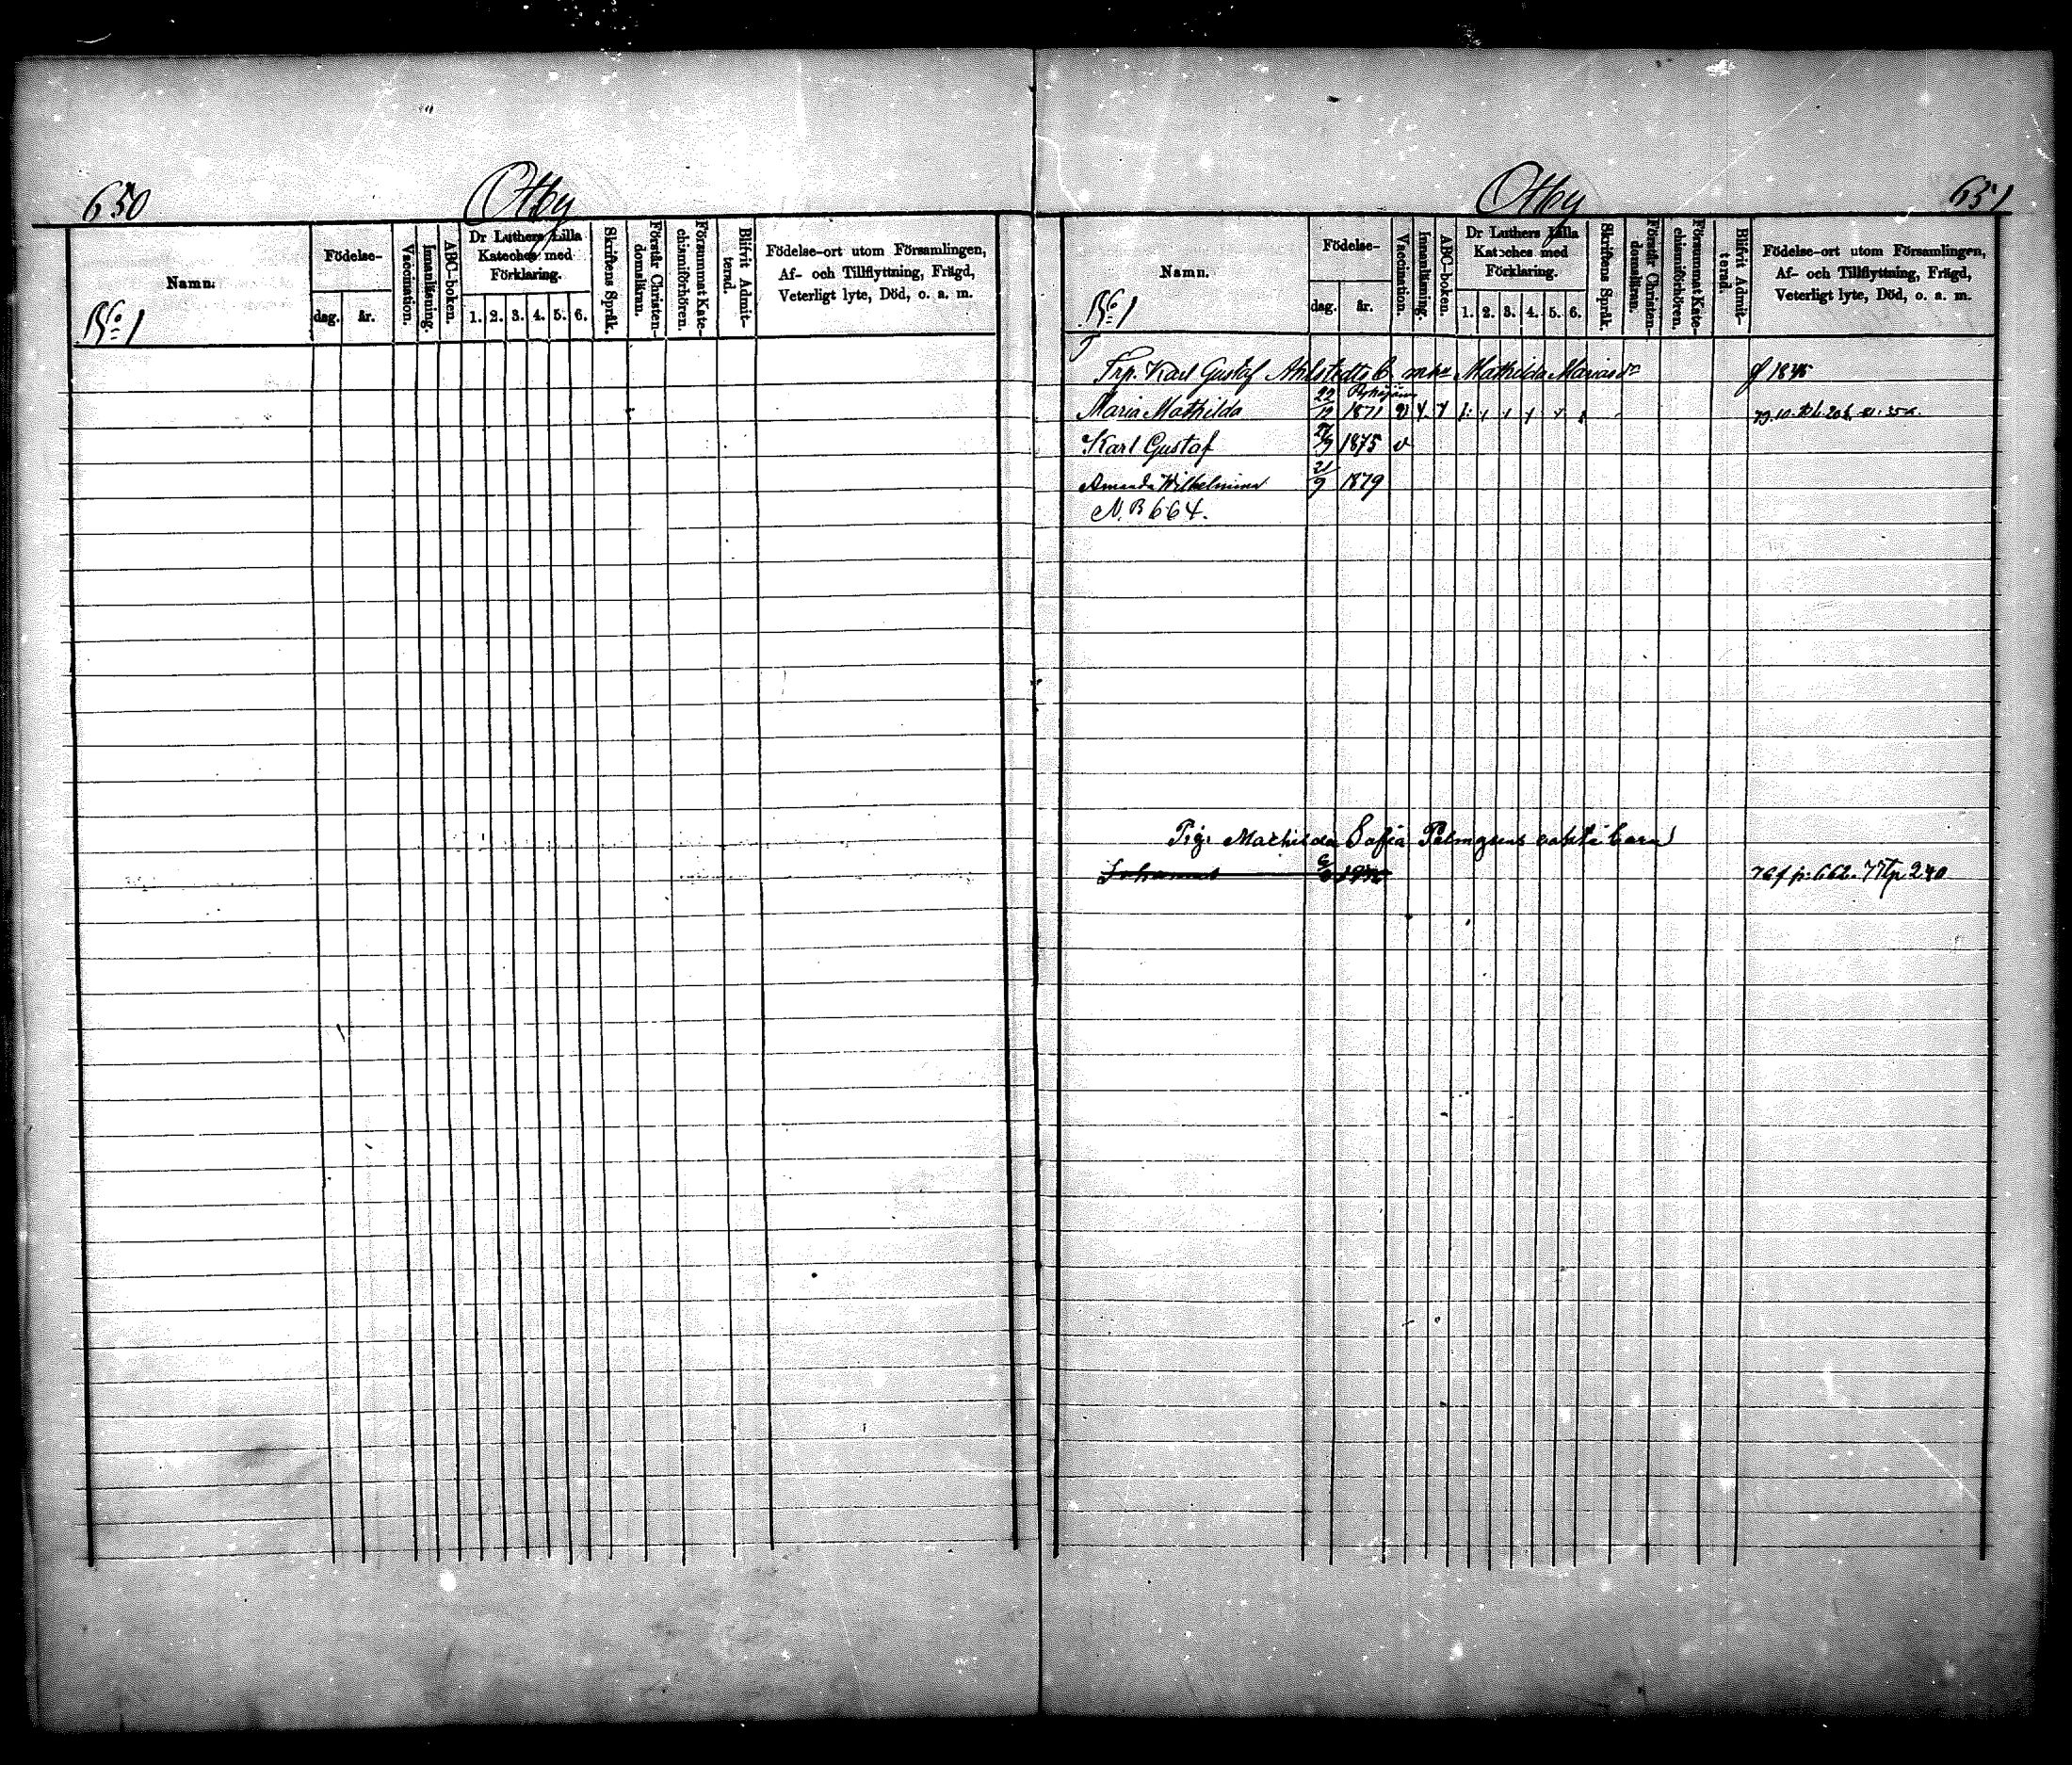 650
Otby
Namn.
Födelse-
dag.
år.
Vaccination.
Innanläsning.
ABC-boken.
Dr Luthers Lilla
Kateches med
Förklaring.
1. 2. 3. 4. 5. 6.
Skriftens Språk.
Förstår Christen-
domsläran.
Försummat Kate-
chismiförhören.
Blifvit Admit-
terad.
Födelse-ort utom Församlingen,
Af- och Tillflyttning, Frägd,
Veterligt lyte, Död, o. a. m.
No 1
Otby
651
Namn.
Födelse-
dag.
år.
Vaccination.
Innanläsning.
ABC-boken.
Dr Luthers Lilla
Kateches med
Förklaring.
1. 2. 3. 4. 5. 6.
Skriftens Språk.
Förstår Christen-
domsläran.
Försummat Kate-
chismiförhören.
Blifvit Admit-
terad.
Födelse-ort utom Församlingen,
Af- och Tillflyttning, Frägd,
Veterligt lyte, Död, o. a. m.
No 1
Trp. Karl Gustaf Ahlstedts B. m Mathilda Mariasdr
Maria Mathilda 22/12 1871 v
Karl Gustaf 27/9 1875 v
Amanda Wilhelmina 21/9 1879
N.B 664.
Pig. Machilda Safia Palmgrens oakta barn
Johannes
76 f p. 662. 77 t p 240